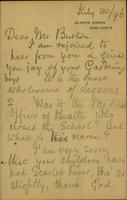 July 30/96
Dear Mr Burton
I am rejoiced to
hear from you & give
you joy of your Gardening
boys it is the most
wholesome of lessons
2. Was it the Medical
Officer of Health who
closed the School? And
What is his name?
I am very sorry
that your children have
had Scarlet Fever, tho' so
slightly, thank God